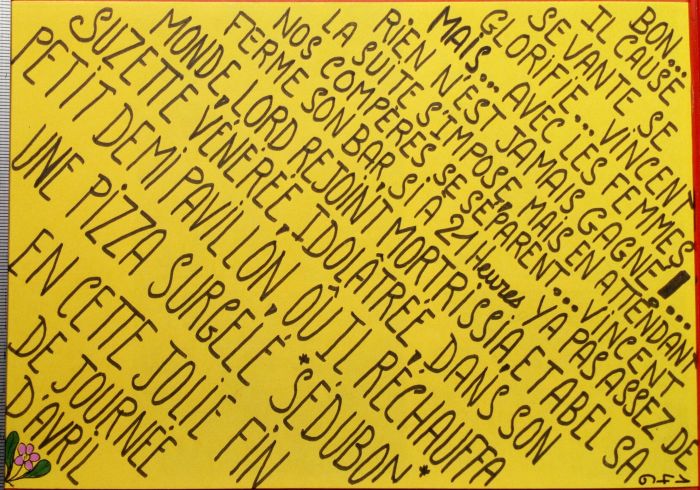 BON...
IL CAUSE
SE VANTE SE
GLORIFIE... VINCENT
MAIS... AVEC LES FEMMES
RIEN N'EST JAMAIS GAGNÉ...
LA SUITE S'IMPOSE, MAIS EN ATTENDANT
NOS COMPÈRES SE SÉPARENT... VINCENT
FERME SON BAR, SI À 21 Heures YA PAS ASSEZ DE
MONDE, LORD REJOINT MORTRISSIA, ET ABEL SA
SUZETTE VÉNÉRÉE, IDOLÂTRÉE, DANS SON
PETIT DEMI PAVILLON, OÙ IL RÉCHAUFFA
UNE PIZZA SURGELÉ *SÉDUBON*
EN CETTE JOLIE FIN
DE JOURNÉE
D'AVRIL
176